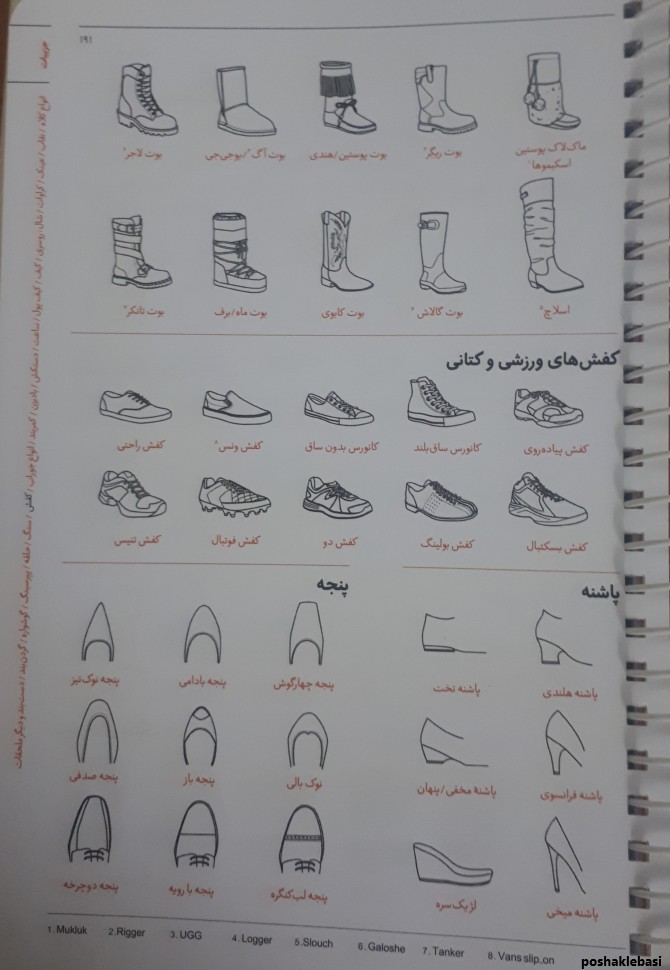 ۱۹۱
جزییات
انواع کلاه / نقاب / عینک / کراوات / شال، روسری / کیف / کیف پول / ساعت / دستکش / بادبزن / کمربند / انواع جوراب / کفش / سنگ / حلقه / پیرسینگ / گوشواره / گردن‌بند / دست‌بند و دیگر ملحقات
ماک‌لاک پوستین اسکیموها۱
بوت ریگر۲
بوت پوستین/هندی
بوت آگ۳/یوجی‌جی
بوت لاجر۴
اسلاچ۵
بوت گالاش۶
بوت کابوی
بوت ماه/برف
بوت تانکر۷
کفش‌های ورزشی و کتانی
کفش پیاده‌روی
کانورس ساق‌بلند
کانورس بدون ساق
کفش ونس۸
کفش راحتی
کفش بسکتبال
کفش بولینگ
کفش دو
کفش فوتبال
کفش تنیس
پاشنه
پاشنه هلندی
پاشنه تخت
پاشنه فرانسوی
پاشنهٔ مخفی/پنهان
پاشنه میخی
لژ یک‌سره
پنجه
پنجه چهارگوش
پنجه بادامی
پنجه نوک‌تیز
نوک بالی
پنجه باز
پنجه صدفی
پنجه لب‌کنگره
پنجه با رویه
پنجه دوچرخه
1. Mukluk 2.Rigger 3. UGG 4. Logger 5.Slouch 6. Galoshe 7. Tanker 8. Vans slip_on
poshaklebasi